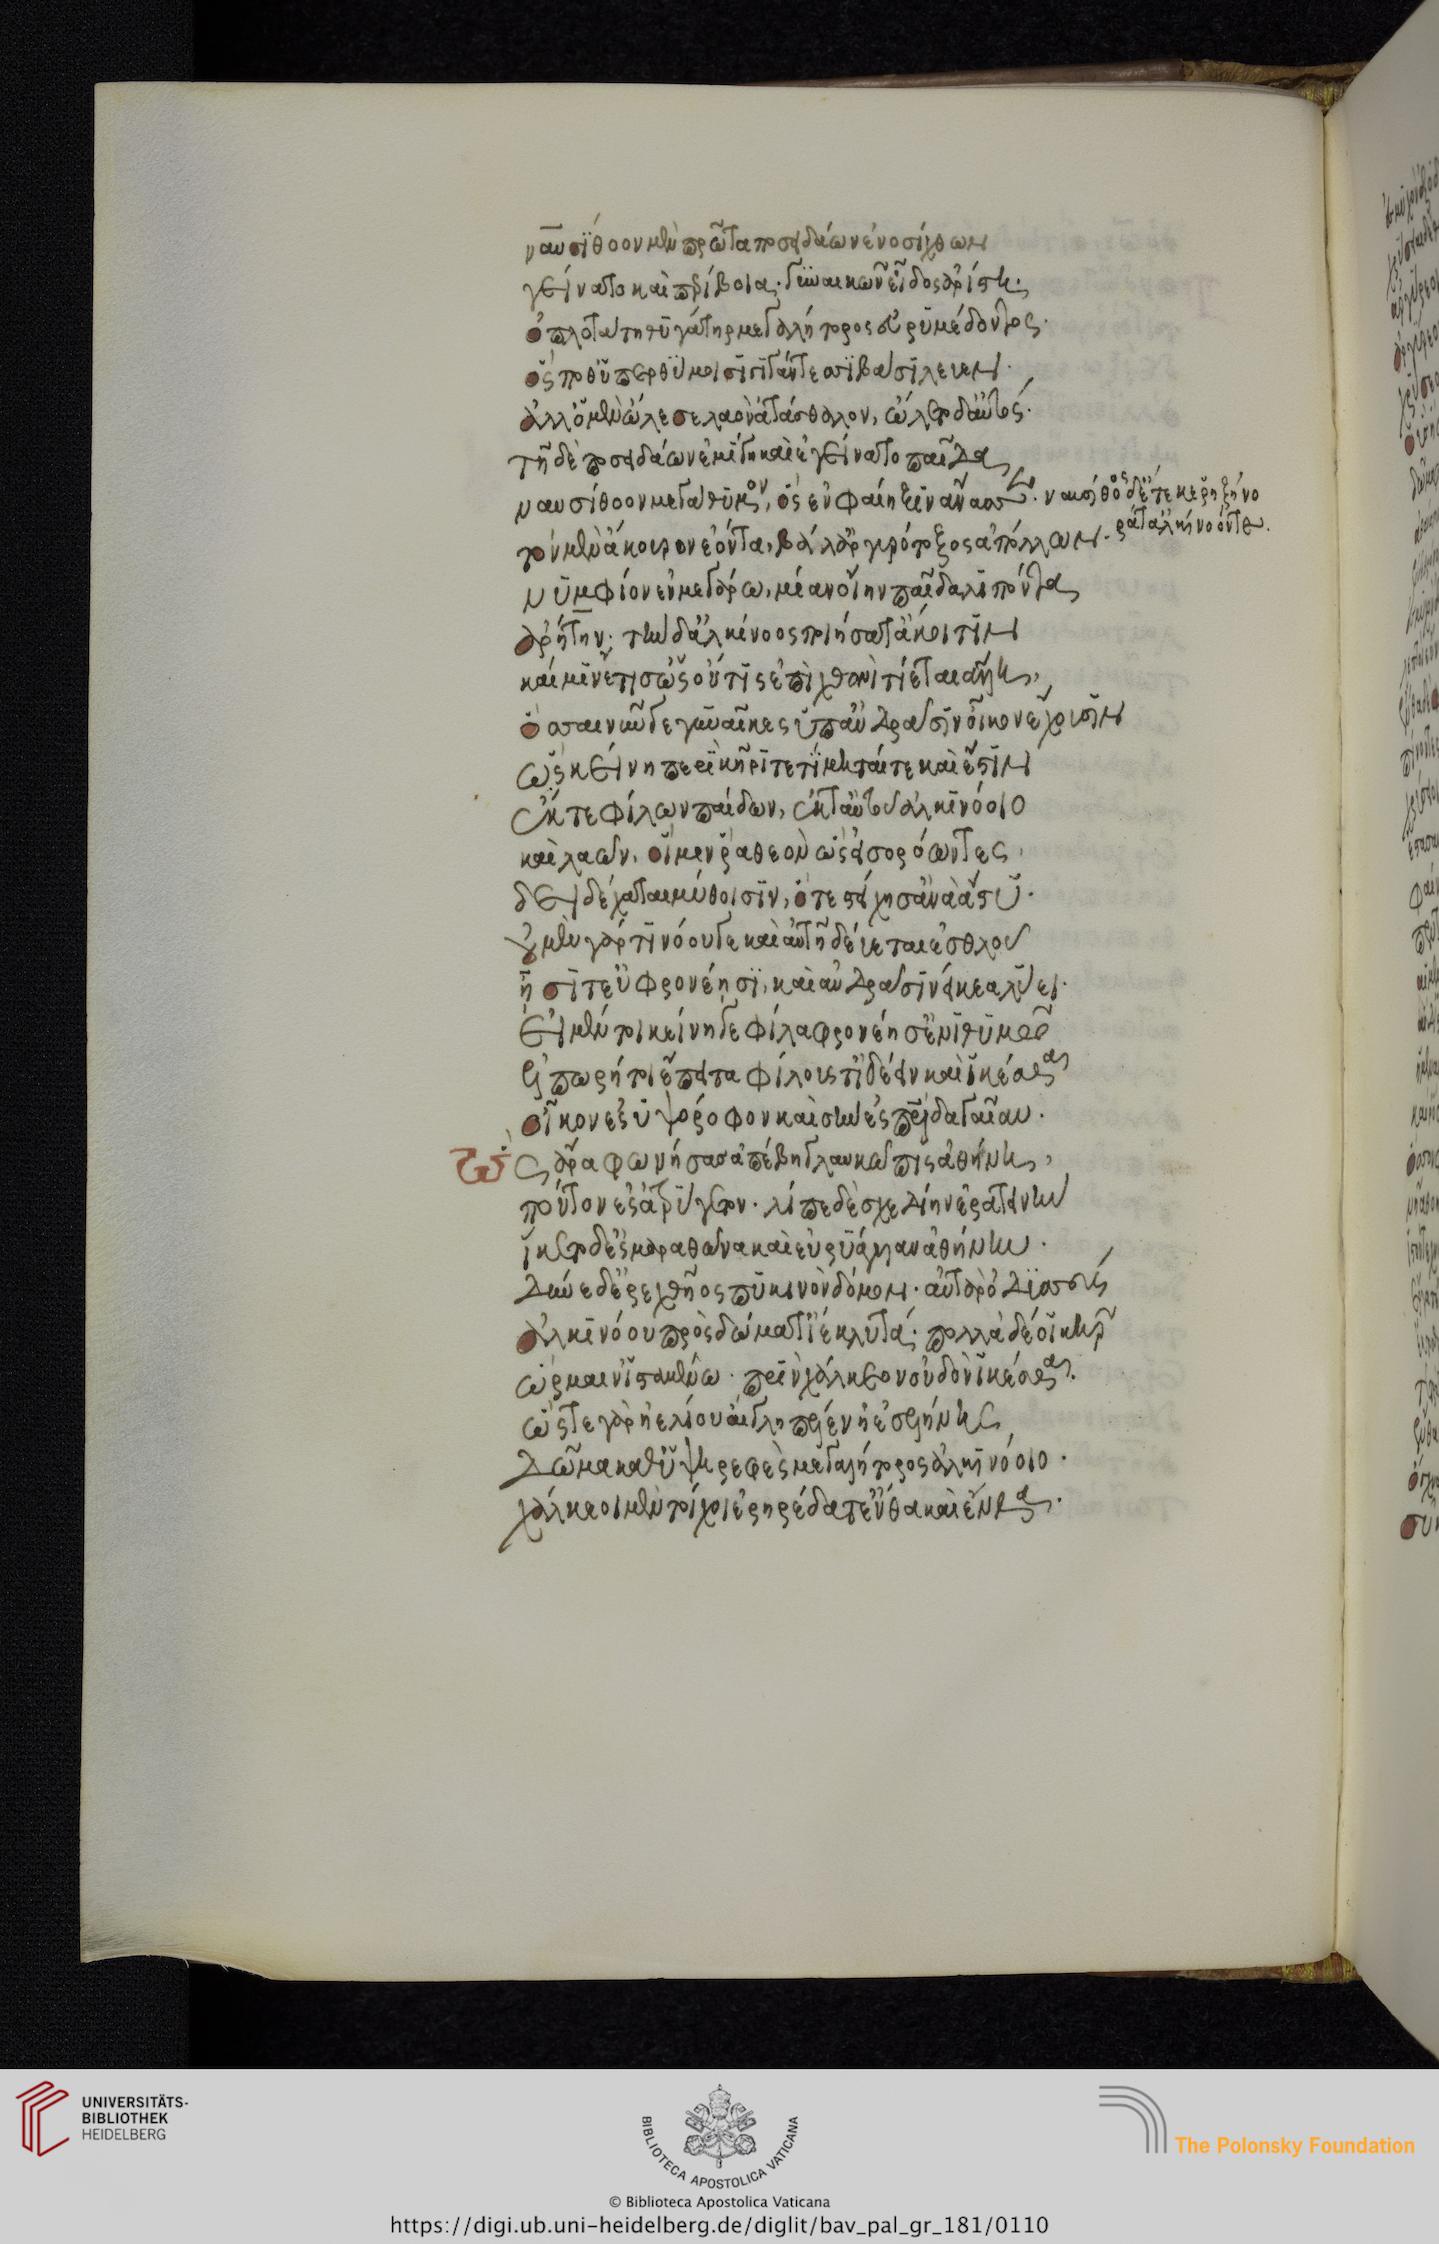 ναυσίθοον μὲν πρῶτα ποσειδάων ἐνοσίχθων
γείνατο καὶ περίβοια· γυναικῶν εἶδος ἀρίστη·
ὁπλοτάτη θυγάτηρ μεγαλήτορος εὐρυμέδοντος·
ὅς ποθ' ὑπερθύμοισι γιγάντεσσι βασίλευεν·
ἀλλ' ὁ μὲν ὤλεσε λαὸν ἀτάσθαλον, ὤλετο δ' αὐτός·
τῇ δὲ ποσειδάων ἐμίγη καὶ ἐγείνατο παῖδα
ναυσίθοον μεγάθυμον, ὃς ἐν φαίηξιν ἄνασσεν· ναυσίθοος δ' ἔτεκε ῥηξήνο
ρά τ' ἀλκίνοόν τε.
τὸν μὲν ἄκουρον ἐόντα, βάλ' ἀργυρότοξος ἀπόλλων·
νυμφίον ἐν μεγάρω, μίαν οἴην παῖδα λιπόντα
ἀρήτην· τὴν δ' ἀλκίνοος ποιήσατ' ἄκοιτιν
καί μιν ἔτισ' ὡς οὔτις ἐπὶ χθονὶ τίεται ἄλλη,
ὅσσαι νῦν γε γυναῖκες ὑπ' ἀνδράσιν οἶκον ἔχουσιν
ὣς κείνη περὶ κῆρι τετίμηταί τε καὶ ἔστιν
ἔκ τε φίλων παίδων, ἔκ τ' αὐτοῦ ἀλκινόοιο
καὶ λαῶν, οἵ μέν ῥα θεὸν ὣς εἰσορόωντες
δειδέχαται μύθοισιν, ὅτε στείχησ' ἀνὰ ἄστυ·
οὐ μὲν γάρ τι νόου γε καὶ αὐτὴ δεύεται ἐσθλοῦ
ᾗσί τ' εὖ φρονέησι, καὶ ἀνδράσι νείκεα λύει·
εἰ μέν τοι κείνη γε φίλα φρονέησ' ἐνὶ θυμῶ
ἐλπωρή τοι ἔπειτα φίλους τ' ἰδέειν καὶ ἱκέσθαι
οἶκον ἐς ὑψόροφον καὶ σὴν ἐς πατρίδα γαῖαν·
ὣς ἄρα φωνήσασ' ἀπέβη γλαυκῶπις ἀθήνη,
πόντον ἐπ' ἀτρύγετον· λίπε δὲ σχερίην ἐρατεινὴν
ἵκετο δ' ἐς μαραθῶνα καὶ εὐρυάγυιαν ἀθήνην·
δῦνε δ' ἐρεχθῆος πυκινὸν δόμον· αὐτὰρ ὀδυσσεύς
ἀλκινόου πρὸς δώματ' ἴε κλυτά· πολλὰ δέ οἱ κῆρ
ὥρμαιν' ἱσταμένω· πρὶν χάλκεον οὐδὸν ἱκέσθαι·
ὥς τε γὰρ ἠελίου αἴγλη πέλεν ἠὲ σελήνης
δῶμα καθ' ὑψηρεφὲς μεγαλήτορος ἀλκινόοιο·
χάλκεοι μὲν τοίχοι ἐρηρέδατ' ἔνθα καὶ ἔνθα·
UNIVERSITÄTS-
BIBLIOTHEK
HEIDELBERG
BIBLIOTECA APOSTOLICA VATICANA
The Polonsky Foundation
© Biblioteca Apostolica Vaticana
https://digi.ub.uni-heidelberg.de/diglit/bav_pal_gr_181/0110